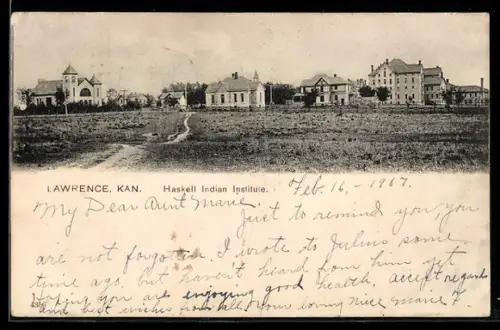 LAWRENCE, KAN. Haskell Indian Institute.
Feb. 16, - 1907.
My Dear Aunt Marie,
Just to remind you you
are not forgotten. I wrote to Julius some
time ago, but haven't heard from him yet
hoping you are enjoying good health, accept regards
and best wishes from all. Your loving niece Marie F